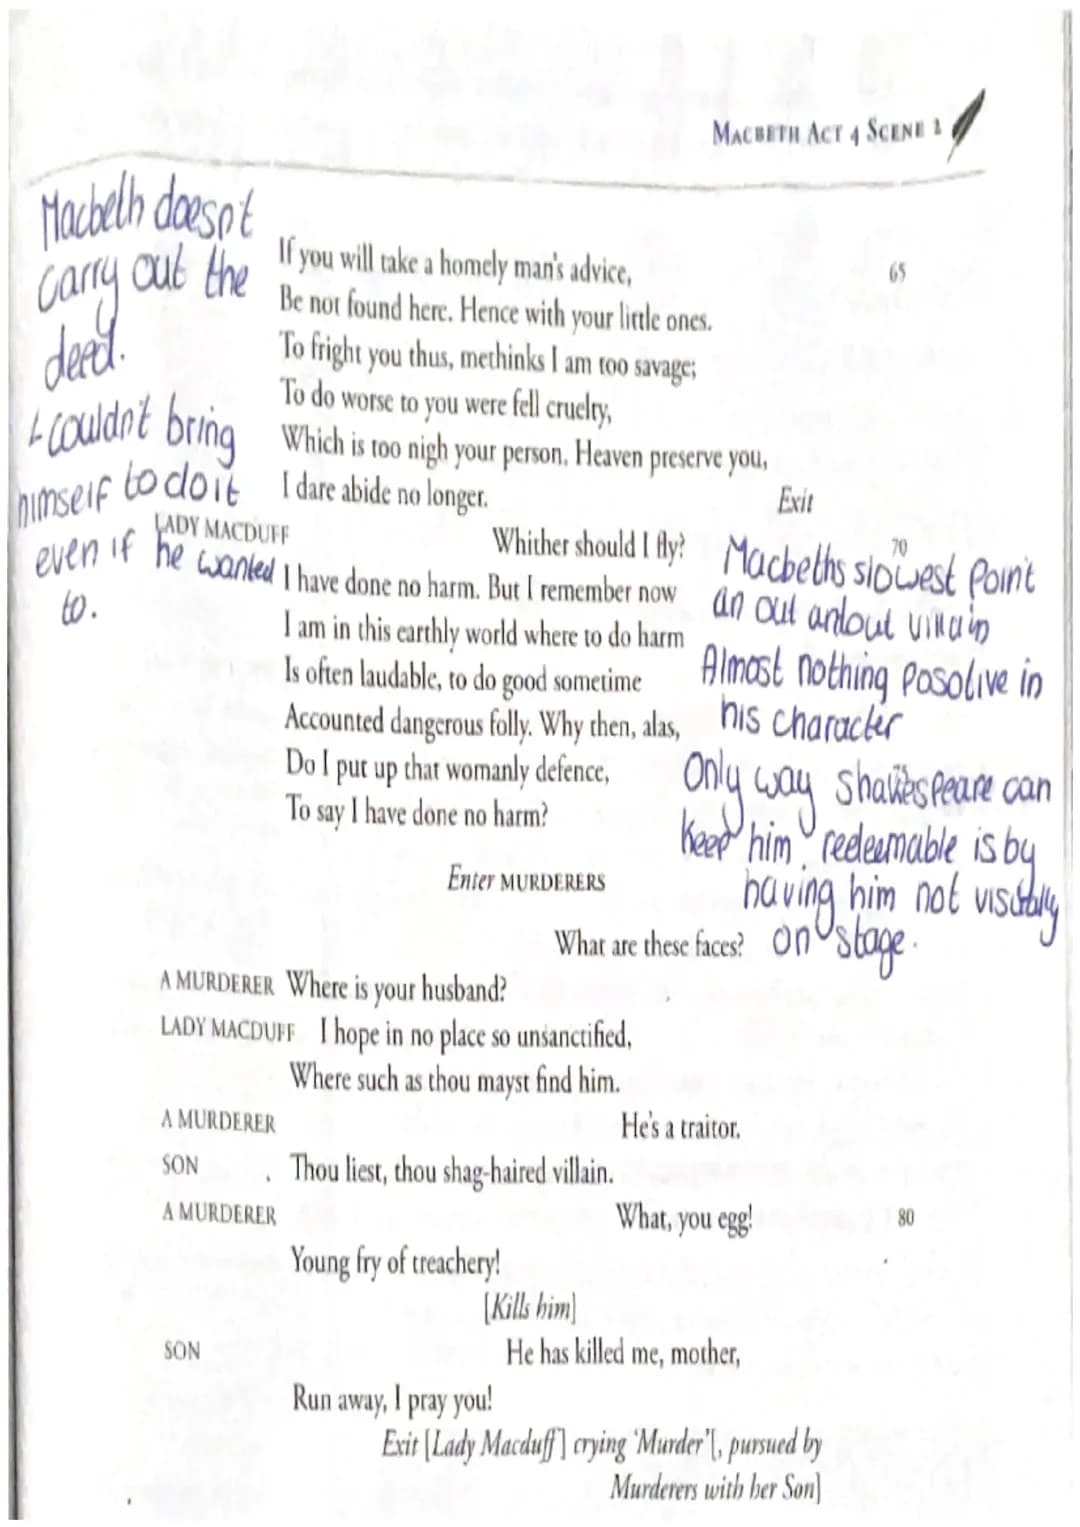 MACBETH ACT 4 SCENE 2
Macbeth doesnt
carry out the
deed.
↳ couldn't bring
himself to do it
even if he wanted
to.
If you will take a homely man's advice, 65
Be not found here. Hence with your little ones.
To fright you thus, methinks I am too savage;
To do worse to you were fell cruelty,
Which is too nigh your person. Heaven preserve you,
I dare abide no longer. Exit
LADY MACDUFF Whither should I fly? 70
I have done no harm. But I remember now
I am in this earthly world where to do harm
Is often laudable, to do good sometime
Accounted dangerous folly. Why then, alas,
Do I put up that womanly defence, 75
To say I have done no harm?
Macbeths slowest point
an out anlout villain
Almost nothing posotive in
his character
Only way Shakespeare can
keep him redeemable is by
having him not visually
on stage.
Enter MURDERERS
What are these faces?
A MURDERER Where is your husband?
LADY MACDUFF I hope in no place so unsanctified,
Where such as thou mayst find him.
A MURDERER He's a traitor.
SON Thou liest, thou shag-haired villain.
A MURDERER What, you egg! 80
Young fry of treachery!
[Kills him]
SON He has killed me, mother,
Run away, I pray you!
Exit [Lady Macduff] crying 'Murder'[, pursued by
Murderers with her Son]